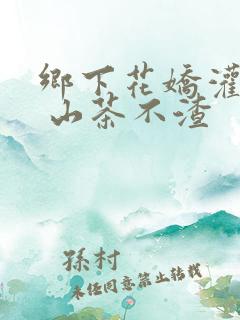 鄉下花嬌灌
山茶不渣
孫村
未任同意禁止转载